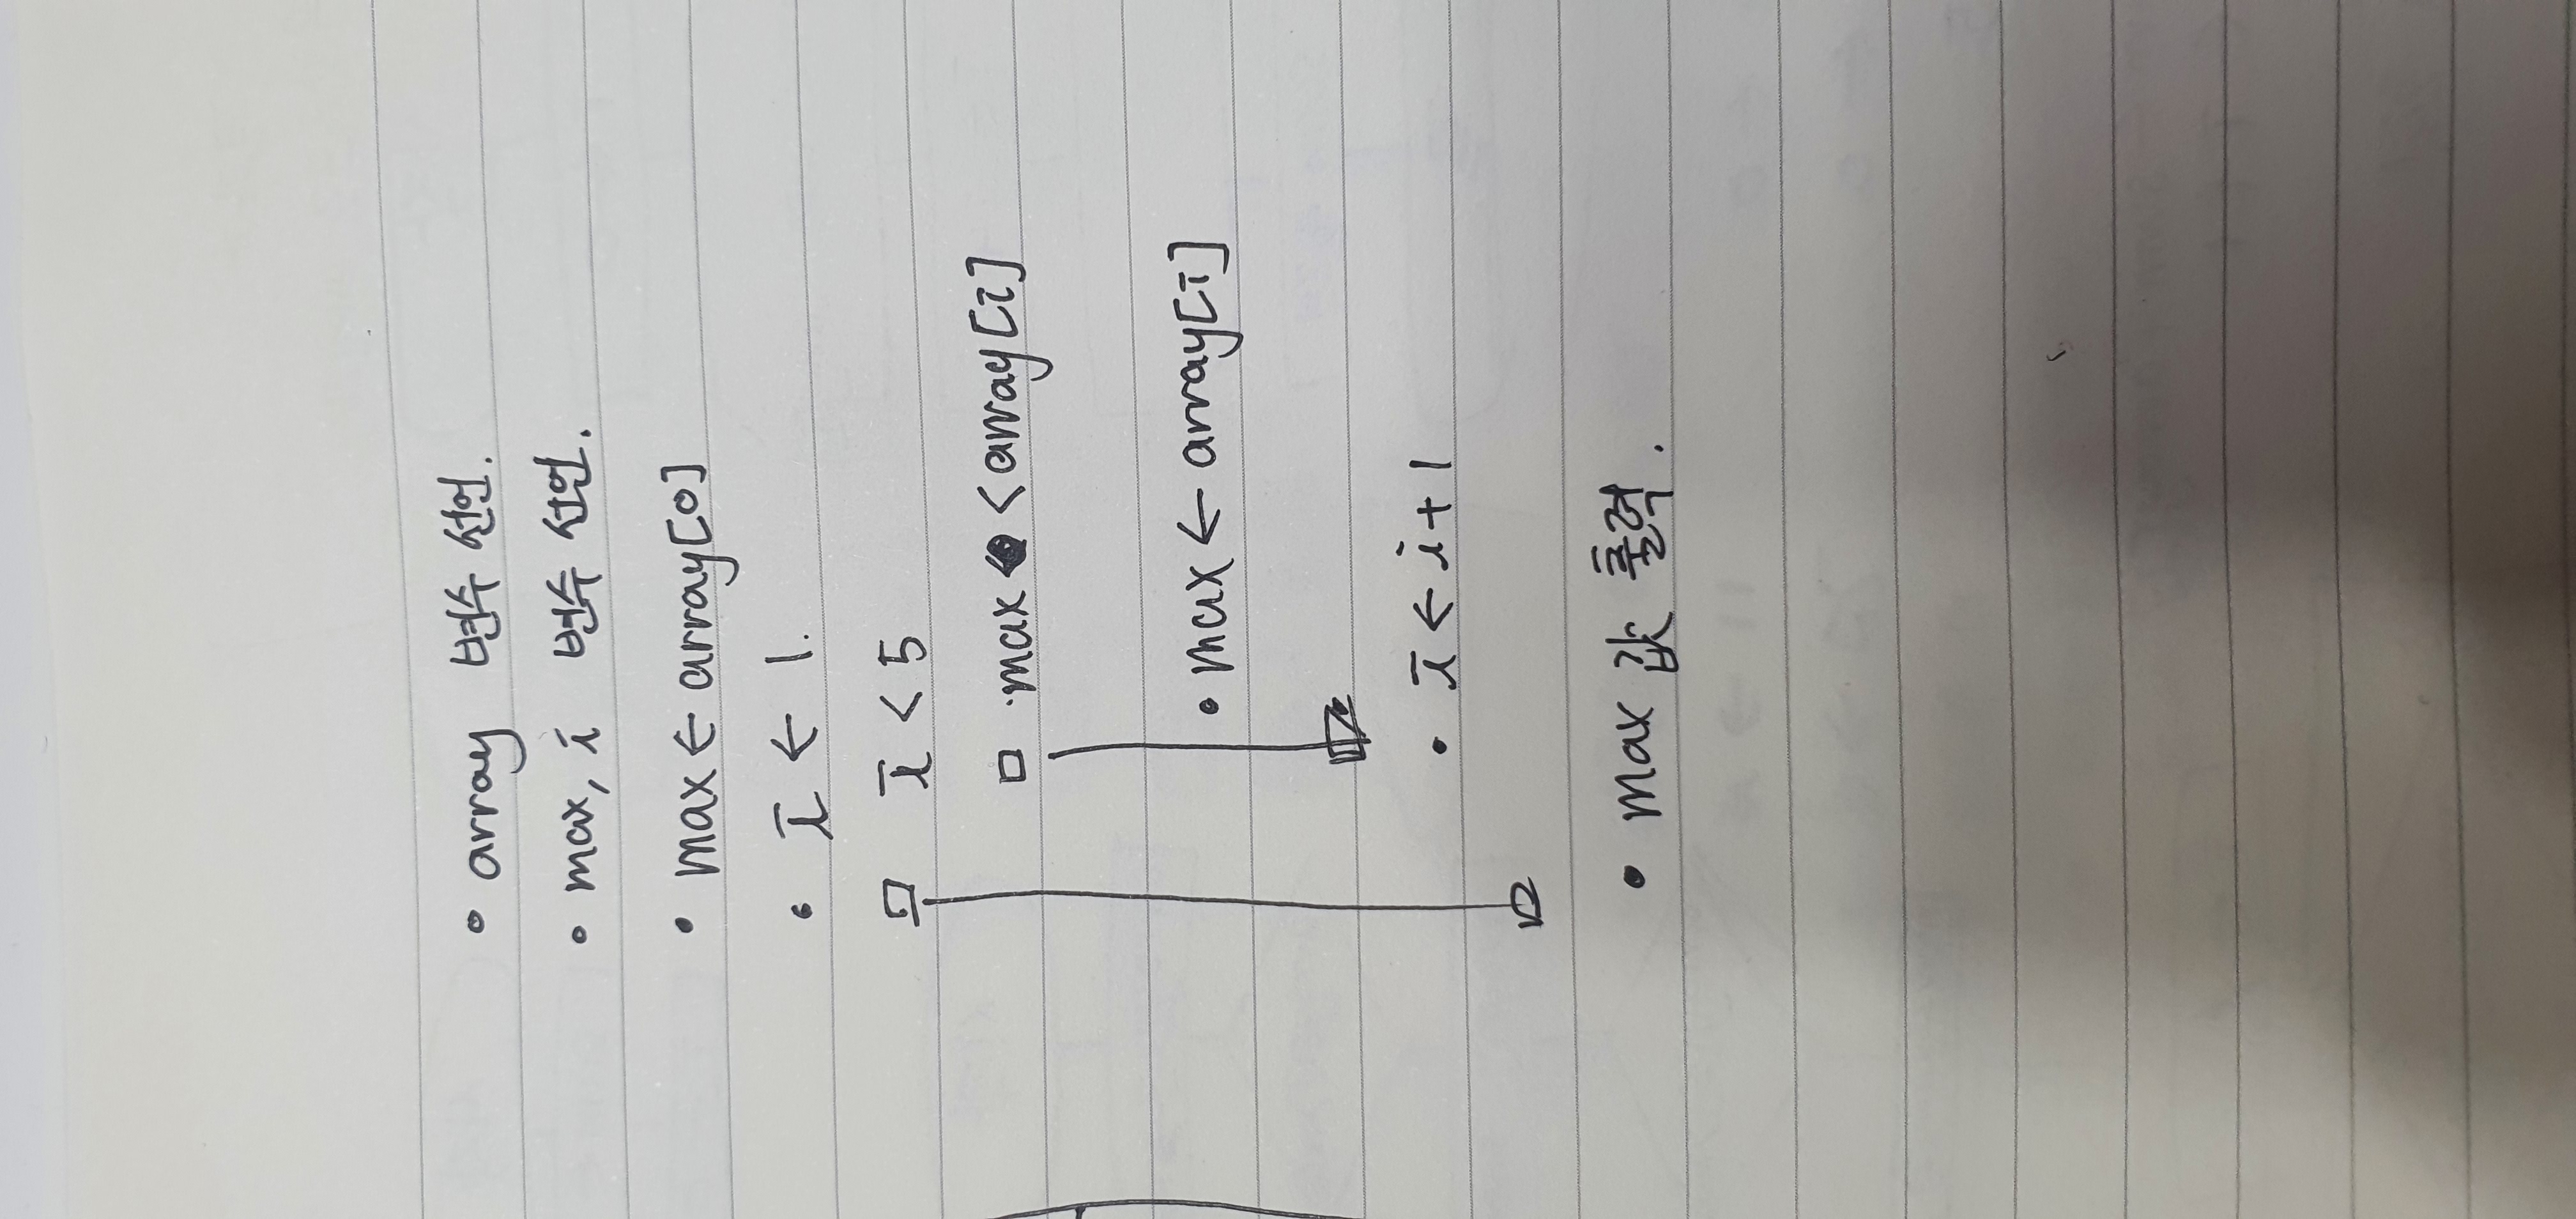 • array 변수 선언.
• max, i 변수 선언.
• max ← array[0]
• i ← 1.
□ i < 5
□ max < array[i]
• max ← array[i]
• i ← i + 1
• max 값 출력.